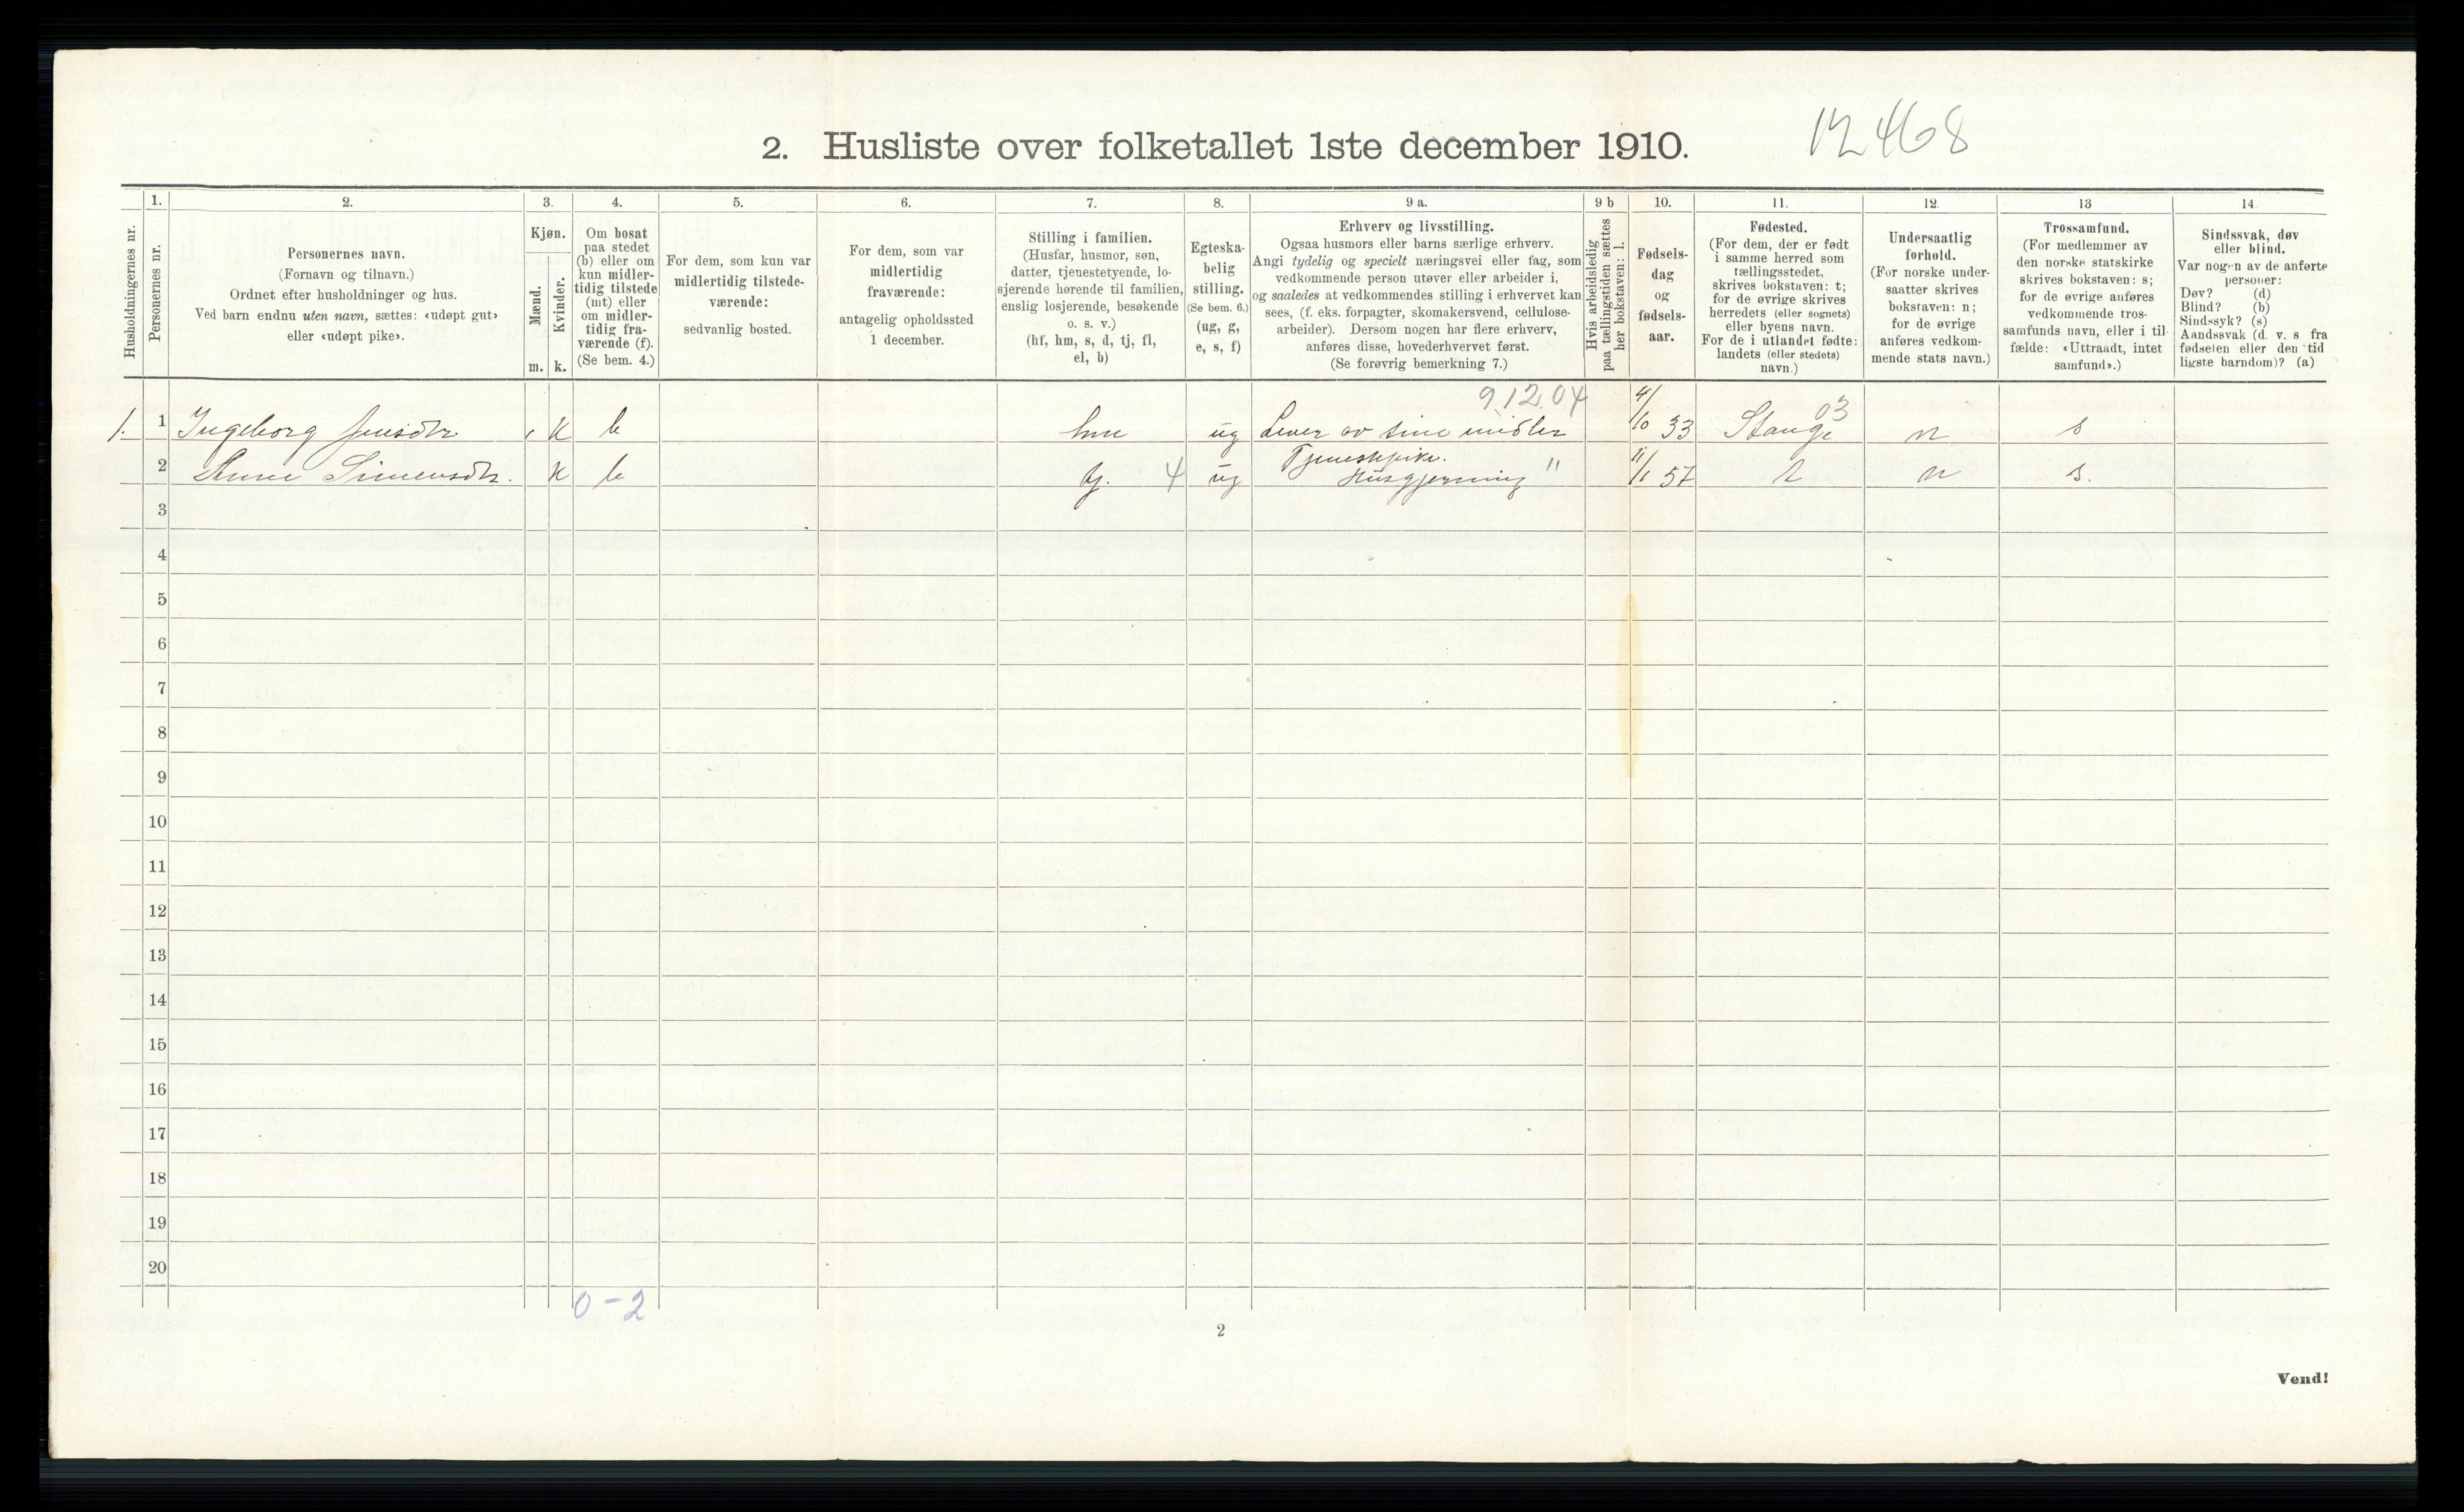 2. Husliste over folketallet 1ste december 1910.
12468
Husholdningernes nr.
1.
Personernes nr.
2.
Personernes navn.
(Fornavn og tilnavn.)
Ordnet efter husholdninger og hus.
Ved barn endnu uten navn, sættes: «udøpt gut»
eller «udøpt pike».
3.
Kjøn.
Mænd.
Kvinder.
m. k.
4.
Om bosat
paa stedet
(b) eller om
kun midler-
tidig tilstede
(mt) eller
om midler-
tidig fra-
værende (f).
(Se bem. 4.)
5.
For dem, som kun var
midlertidig tilstede-
værende:
sedvanlig bosted.
6.
For dem, som var
midlertidig
fraværende:
antagelig opholdssted
1 december.
7.
Stilling i familien.
(Husfar, husmor, søn,
datter, tjenestetyende, lo-
sjerende hørende til familien,
enslig losjerende, besøkende
o. s. v.)
(hf, hm, s, d, tj, fl,
el, b)
8.
Egteska-
belig
stilling.
(Se bem. 6.)
(ug, g,
e, s, f)
9 a.
Erhverv og livsstilling.
Ogsaa husmors eller barns særlige erhverv.
Angi tydelig og specielt næringsvei eller fag, som
vedkommende person utøver eller arbeider i,
og saaledes at vedkommendes stilling i erhvervet kan
sees, (f. eks. forpagter, skomakersvend, cellulose-
arbeider). Dersom nogen har flere erhverv,
anføres disse, hovederhvervet først.
(Se forøvrig bemerkning 7.)
9 b
Hvis arbeidsledig
paa tællingstiden sættes
her bokstaven: l.
10.
Fødsels-
dag
og
fødsels-
aar.
11.
Fødested.
(For dem, der er født
i samme herred som
tællingsstedet,
skrives bokstaven: t;
for de øvrige skrives
herredets (eller sognets)
eller byens navn.
For de i utlandet fødte:
landets (eller stedets)
navn.)
12.
Undersaatlig
forhold.
(For norske under-
saatter skrives
bokstaven: n;
for de øvrige
anføres vedkom-
mende stats navn.)
13
Trossamfund.
(For medlemmer av
den norske statskirke
skrives bokstaven: s;
for de øvrige anføres
vedkommende tros-
samfunds navn, eller i til-
fælde: «Uttraadt, intet
samfund».)
14.
Sindssvak, døv
eller blind.
Var nogen av de anførte
personer:
Døv? (d)
Blind? (b)
Sindssyk? (s)
Aandssvak (d. v. s fra
fødselen eller den tid
ligste barndom)? (a)
9.12.04 03
1. 1 Ingeborg Jensdtr k b hm ug Lever av sine midler 4/10 33 Stange n s
2 Anne Simensdtr. k b tj. 4 ug Tjenestepike. Husgjerning " 11/1 57 t n s.
3
4
5
6
7
8
9
10
11
12
13
14
15
16
17
18
19
20
0-2
2
Vend!